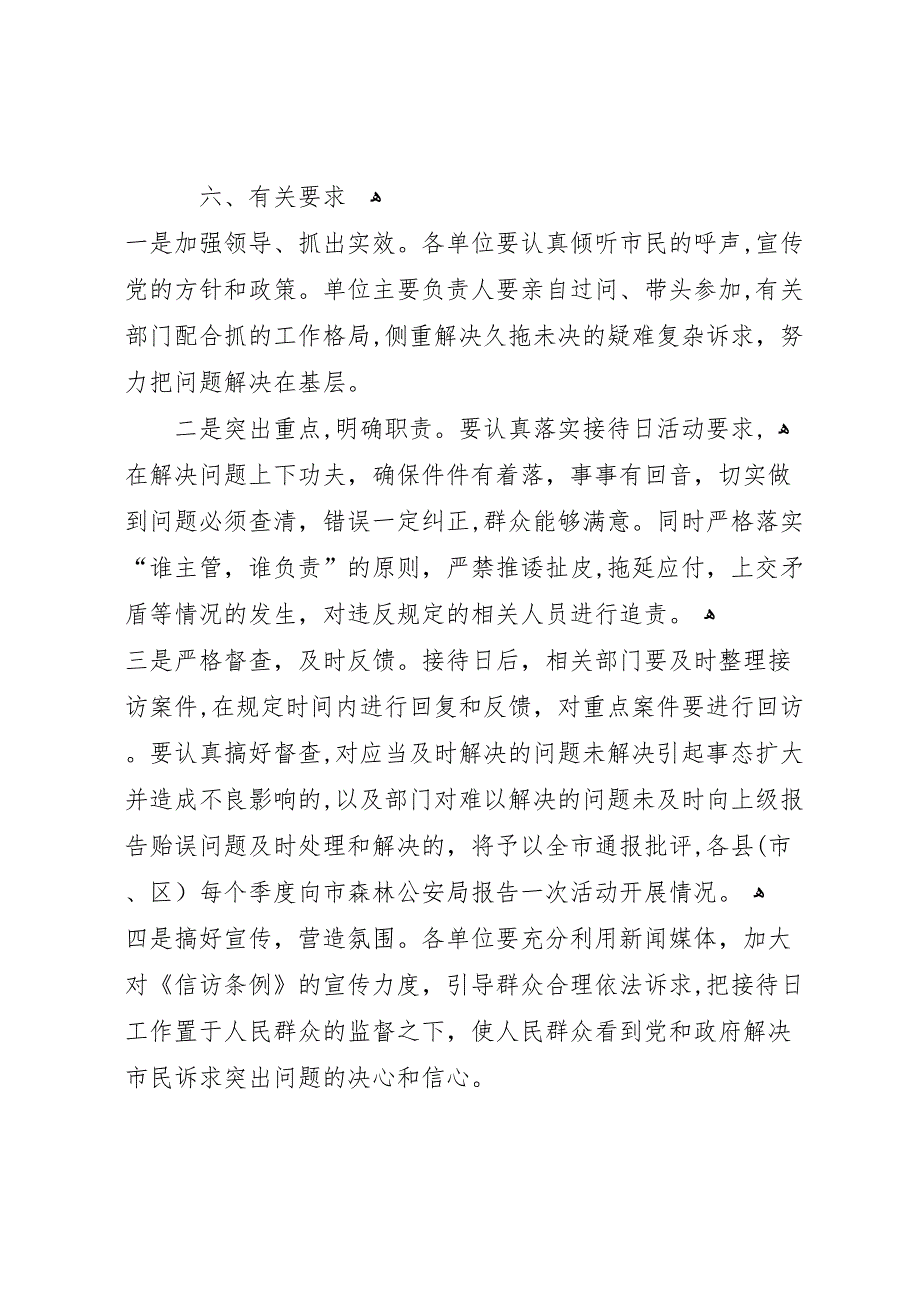 六、有关要求 ﻫ
一是加强领导、抓出实效。各单位要认真倾听市民的呼声,宣传
党的方针和政策。单位主要负责人要亲自过问、带头参加,有关
部门配合抓的工作格局,侧重解决久拖未决的疑难复杂诉求，努
力把问题解决在基层。
二是突出重点,明确职责。要认真落实接待日活动要求，ﻫ
在解决问题上下功夫，确保件件有着落，事事有回音，切实做
到问题必须查清，错误一定纠正,群众能够满意。同时严格落实
“谁主管，谁负责”的原则，严禁推诿扯皮,拖延应付，上交矛
盾等情况的发生，对违反规定的相关人员进行追责。ﻫ
三是严格督查，及时反馈。接待日后，相关部门要及时整理接
访案件,在规定时间内进行回复和反馈，对重点案件要进行回访
。要认真搞好督查,对应当及时解决的问题未解决引起事态扩大
并造成不良影响的,以及部门对难以解决的问题未及时向上级报
告贻误问题及时处理和解决的，将予以全市通报批评,各县(市
、区）每个季度向市森林公安局报告一次活动开展情况。ﻫ
四是搞好宣传，营造氛围。各单位要充分利用新闻媒体，加大
对《信访条例》的宣传力度，引导群众合理依法诉求,把接待日
工作置于人民群众的监督之下，使人民群众看到党和政府解决
市民诉求突出问题的决心和信心。